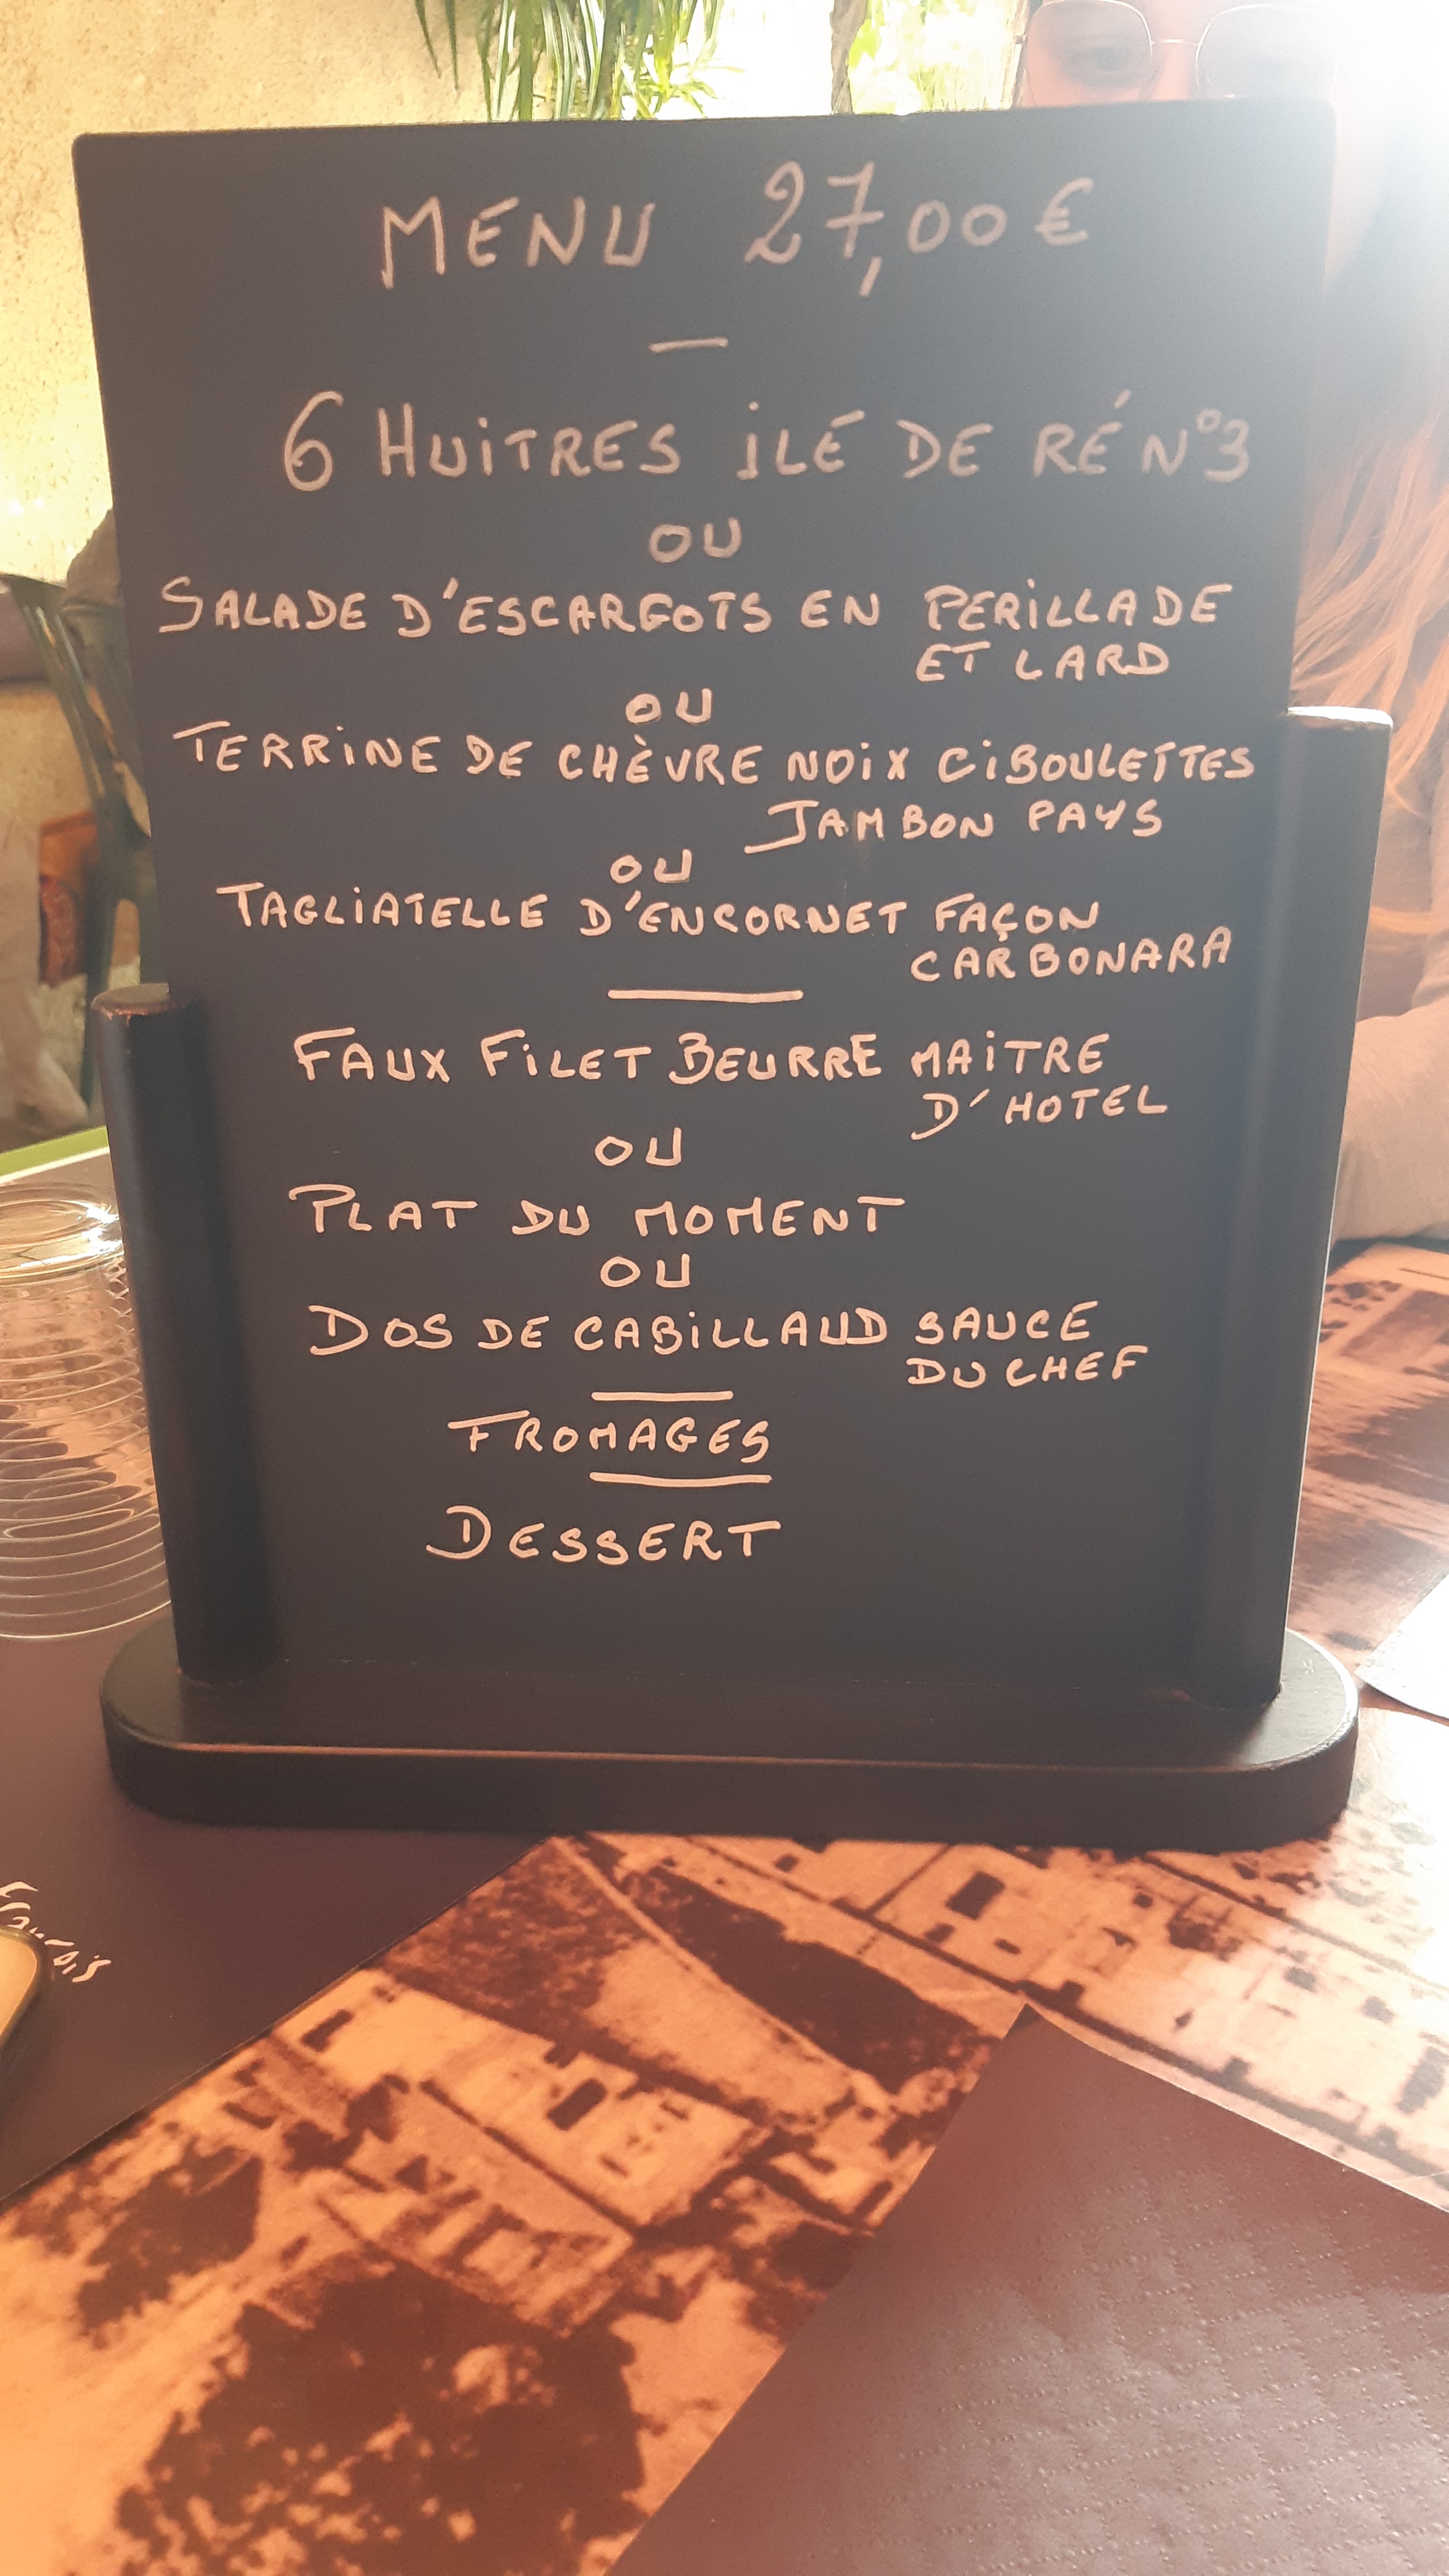 MENU 27,00€
6 HUiTRES iLE DE RÉ N°3
OU
SALADE D'ESCARGOTS EN PERiLLADE
ET LARD
OU
TERRiNE DE CHÈVRE NOiX CiBOULETTES
JAMBON PAYS
OU
TAGLiATELLE D'ENCORNET FAÇON
CARBONARA
FAUX FiLET BEURRE MAiTRE
D'HOTEL
OU
PLAT DU MOMENT
OU
DOS DE CABiLLAUD SAUCE
DU CHEF
FROMAGES
DESSERT